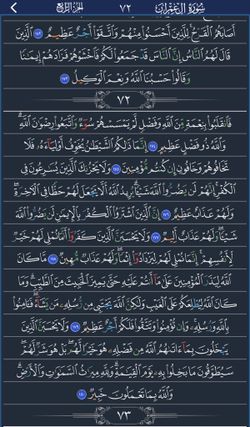 سُورَةُ آلِ عِمْرَان ٧٢ الجُزْءُ الرَّابِعُ
أَصَابَهُمُ ٱلۡقَرۡحُۚ لِلَّذِينَ أَحۡسَنُواْ مِنۡهُمۡ وَٱتَّقَوۡاْ أَجۡرٌ عَظِيمٌ ١٧٢ ٱلَّذِينَ
قَالَ لَهُمُ ٱلنَّاسُ إِنَّ ٱلنَّاسَ قَدۡ جَمَعُواْ لَكُمۡ فَٱخۡشَوۡهُمۡ فَزَادَهُمۡ إِيمَٰنٗا
وَقَالُواْ حَسۡبُنَا ٱللَّهُ وَنِعۡمَ ٱلۡوَكِيلُ ١٧٣
٧٢
فَٱنقَلَبُواْ بِنِعۡمَةٖ مِّنَ ٱللَّهِ وَفَضۡلٖ لَّمۡ يَمۡسَسۡهُمۡ سُوٓءٞ وَٱتَّبَعُواْ رِضۡوَٰنَ ٱللَّهِۗ
وَٱللَّهُ ذُو فَضۡلٍ عَظِيمٍ ١٧٤ إِنَّمَا ذَٰلِكُمُ ٱلشَّيۡطَٰنُ يُخَوِّفُ أَوۡلِيَآءَهُۥ فَلَا
تَخَافُوهُمۡ وَخَافُونِ إِن كُنتُم مُّؤۡمِنِينَ ١٧٥ وَلَا يَحۡزُنكَ ٱلَّذِينَ يُسَٰرِعُونَ فِي
ٱلۡكُفۡرِۚ إِنَّهُمۡ لَن يَضُرُّواْ ٱللَّهَ شَيۡـٔٗاۗ يُرِيدُ ٱللَّهُ أَلَّا يَجۡعَلَ لَهُمۡ حَظّٗا فِي ٱلۡأٓخِرَةِۖ
وَلَهُمۡ عَذَابٌ عَظِيمٌ ١٧٦ إِنَّ ٱلَّذِينَ ٱشۡتَرَوُاْ ٱلۡكُفۡرَ بِٱلۡإِيمَٰنِ لَن يَضُرُّواْ ٱللَّهَ
شَيۡـٔٗاۖ وَلَهُمۡ عَذَابٌ أَلِيمٞ ١٧٧ وَلَا يَحۡسَبَنَّ ٱلَّذِينَ كَفَرُوٓاْ أَنَّمَا نُمۡلِي لَهُمۡ خَيۡرٞ
لِّأَنفُسِهِمۡۚ إِنَّمَا نُمۡلِي لَهُمۡ لِيَزۡدَادُوٓاْ إِثۡمٗاۖ وَلَهُمۡ عَذَابٞ مُّهِينٞ ١٧٨ مَّا كَانَ
ٱللَّهُ لِيَذَرَ ٱلۡمُؤۡمِنِينَ عَلَىٰ مَآ أَنتُمۡ عَلَيۡهِ حَتَّىٰ يَمِيزَ ٱلۡخَبِيثَ مِنَ ٱلطَّيِّبِۗ وَمَا
كَانَ ٱللَّهُ لِيُطۡلِعَكُمۡ عَلَى ٱلۡغَيۡبِ وَلَٰكِنَّ ٱللَّهَ يَجۡتَبِي مِن رُّسُلِهِۦ مَن يَشَآءُۖ فَـَٔامِنُواْ
بِٱللَّهِ وَرُسُلِهِۦۚ وَإِن تُؤۡمِنُواْ وَتَتَّقُواْ فَلَكُمۡ أَجۡرٌ عَظِيمٞ ١٧٩ وَلَا يَحۡسَبَنَّ ٱلَّذِينَ
يَبۡخَلُونَ بِمَآ ءَاتَىٰهُمُ ٱللَّهُ مِن فَضۡلِهِۦ هُوَ خَيۡرٗا لَّهُمۖ بَلۡ هُوَ شَرّٞ لَّهُمۡۖ
سَيُطَوَّقُونَ مَا بَخِلُواْ بِهِۦ يَوۡمَ ٱلۡقِيَٰمَةِۗ وَلِلَّهِ مِيرَٰثُ ٱلسَّمَٰوَٰتِ وَٱلۡأَرۡضِۗ
وَٱللَّهُ بِمَا تَعۡمَلُونَ خَبِيرٞ ١٨٠
٧٣